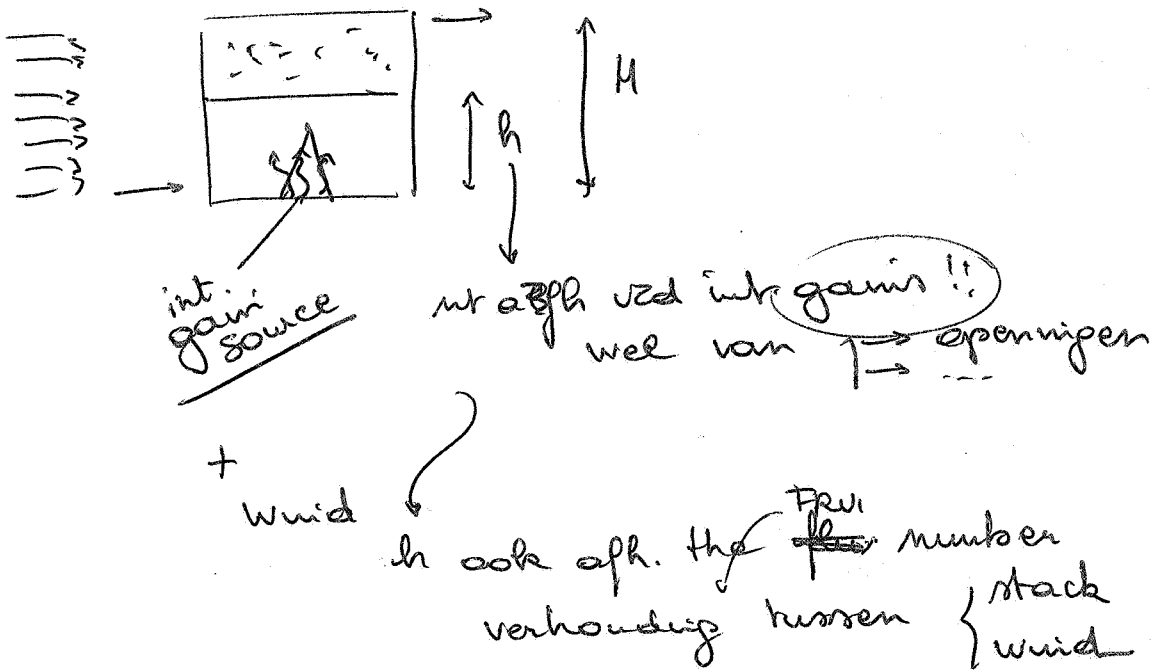 H
h
int.
gain
source
nt afh vrd int. gains !!
wel van → openingen
→ ---
+
Wind
FRUI
h ook afh. the number
verhouding tussen { stack
wind